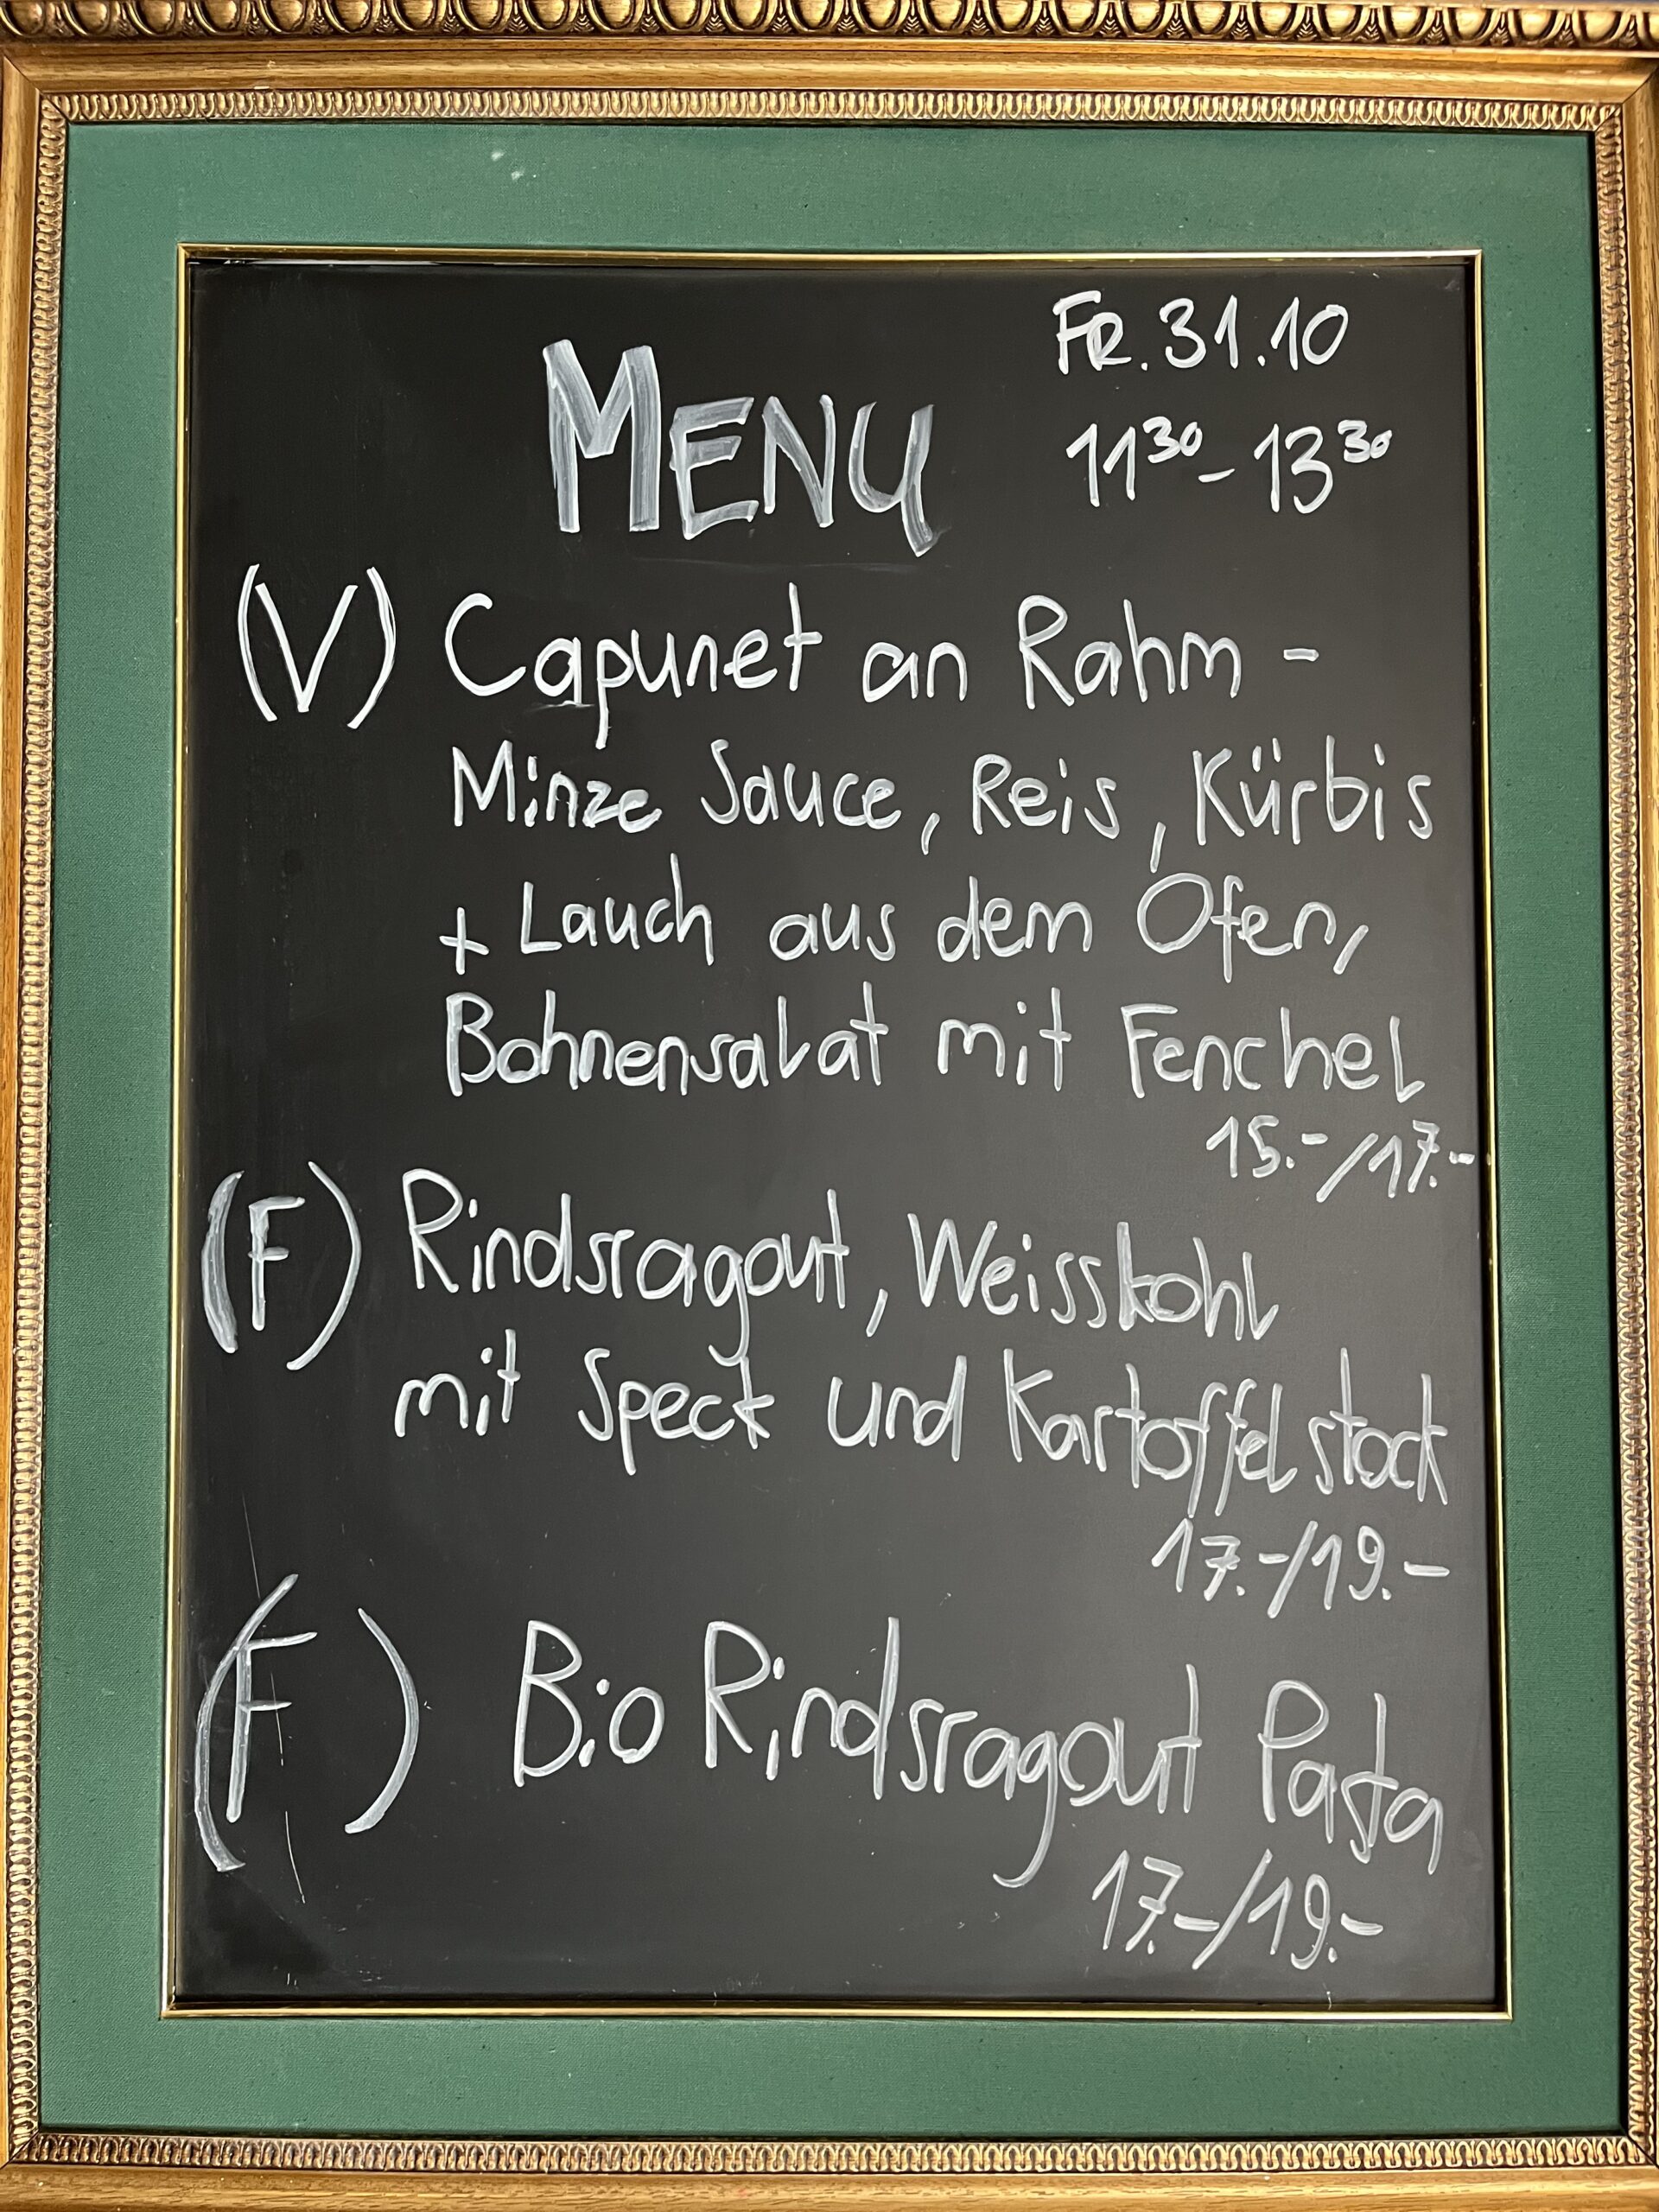 MENU
FR. 31.10
11³⁰ - 13³⁰
(V) Capunet an Rahm -
Minze Sauce, Reis, Kürbis
+ Lauch aus dem Ofen,
Bohnensalat mit Fenchel
15.-/17.-
(F) Rindsragout, Weisskohl
mit Speck und Kartoffelstock
17.-/19.-
(F) Bio Rindsragout Pasta
17.-/19.-